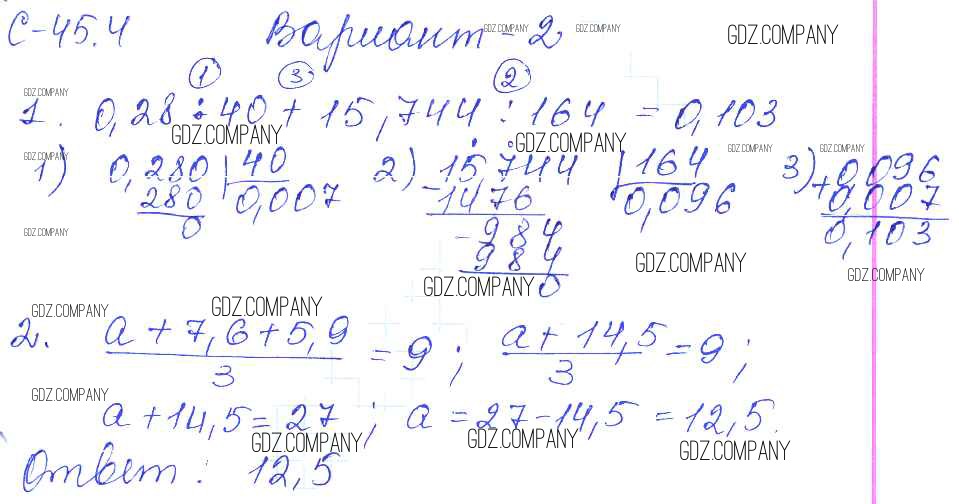 С-45.4 Вариант - 2
GDZ.COMPANY GDZ.COMPANY GDZ.COMPANY
1 3 2
GDZ.COMPANY
1. 0,28 : 40 + 15,744 : 164 = 0,103
GDZ.COMPANY GDZ.COMPANY
GDZ.COMPANY GDZ.COMPANY GDZ.COMPANY
1) 0,280 40 2) 15,744 164 3) 0,096
280 0,007 - 1476 0,096 + 0,007
0 - 984 0,103
GDZ.COMPANY
984
GDZ.COMPANY GDZ.COMPANY
0
GDZ.COMPANY
GDZ.COMPANY GDZ.COMPANY
2. a + 7,6 + 5,9 / 3 = 9 ; a + 14,5 / 3 = 9 ;
GDZ.COMPANY
a + 14,5 = 27 ; a = 27 - 14,5 = 12,5.
GDZ.COMPANY GDZ.COMPANY GDZ.COMPANY
Ответ: 12,5